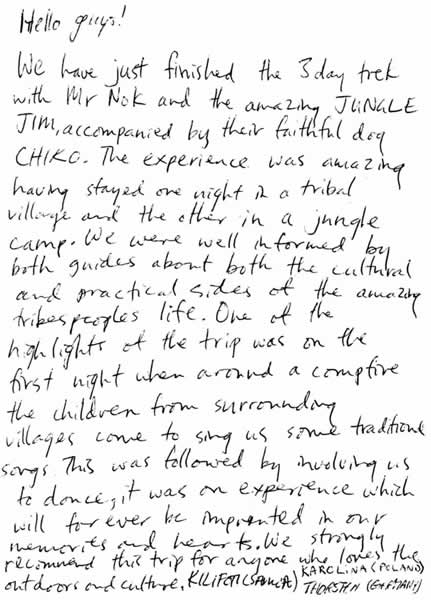 Hello guys!
We have just finished the 3 day trek
with Mr Nok and the amazing JUNGLE
JIM, accompanied by their faithful dog
CHIKO. The experience was amazing
having stayed one night in a tribal
village and the other in a jungle
camp. We were well informed by
both guides about both the cultural
and practical sides of the amazing
tribespeoples life. One of the
highlights of the trip was on the
first night when around a compfire
the children from surrounding
villages come to sing us some traditional
songs. This was followed by involving us
to dance, it was an experience which
will for ever be imprinted in our
memories and hearts. We strongly
recommend this trip for anyone who loves the
outdoors and culture. KAROLINA (POLAND)
THORSTEN (GERMANY)